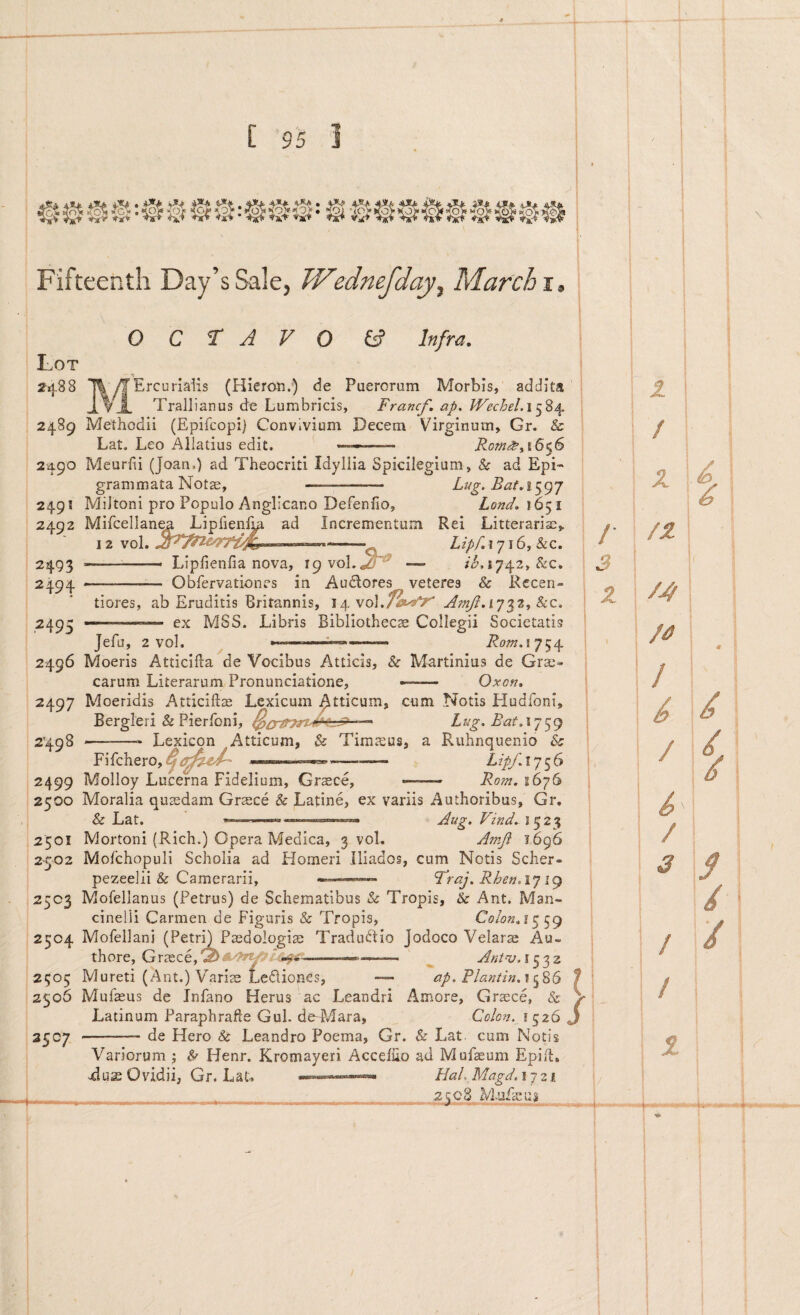 [ 95 ]
Fifteenth Day's Sale, Wednesday, March 1.
O C T A V O & Infra.
Lot
2488 MErcurialis (Hieron.) de Puerorum Morbis, addita 2
Trallianus de Lumbricis, Francf. ap. Wechel. 1584
2489 Methodii (Episcopi) Convivium Decem Virginum, Gr. & 1
Lat. Leo Allatius edit. Romæ, 1656
2490 Meursii (Joan.) ad Theocriti Idyllia Spicilegium, & ad Epi- 2 6
grammata Notæ, Lug. Bat. 1597
2491 Miltoni pro Populo Anglicano Defensio, Lond. 1651 6
2492 Miscellanea Lipsiensia ad Incrementum Rei Litterariæ, 1 12
12 vol. Lips. 1716, &c.
2493 ——— Lipsiensia nova, 19 vol. — ib. 1742, &c. 3
2494 ——— Observationes in Auctores veteres & Recen- 2 14
tiores, ab Eruditis Britannis, 14 vol. Amst. 1732, &c.
2495 ——— ex MSS. Libris Bibliothecæ Collegii Societatis 10
Jesu, 2 vol. Rom. 1754
2496 Moeris Atticista de Vocibus Atticis, & Martinius de Græ- 1
carum Literarum Pronunciatione, —— Oxon.
2497 Moeridis Atticistæ Lexicum Atticum, cum Notis Hudsoni, 6 6
Bergleri & Piersoni, Lug. Bat. 1759
2498 ——— Lexicon Atticum, & Timæus, a Ruhnquenio & 1 6
Fischero, Lips. 1756
2499 Molloy Lucerna Fidelium, Græcé, —— Rom. 1676 6
2500 Moralia quædam Græcé & Latiné, ex variis Authoribus, Gr. 6
& Lat. Aug. Vind. 1523
2501 Mortoni (Rich.) Opera Medica, 3 vol. Amst 1696 1
2502 Moschopuli Scholia ad Homeri Iliados, cum Notis Scher- 3 9
pezeelii & Camerarii, Traj. Rhen. 1719
2503 Mosellanus (Petrus) de Schematibus & Tropis, & Ant. Man- 6
cinelli Carmen de Figuris & Tropis, Colon. 1559
2504 Mosellani (Petri) Pædologiæ Traductio Jodoco Velaræ Au- 1 6
thore, Græcé, Antv. 1532
2505 Mureti (Ant.) Variæ Lectiones, — ap. Plantin. 1586
2506 Musæus de Insano Herus ac Leandri Amore, Græcé, & 1
Latinum Paraphraste Gul. de Mara, Colon. 1526
2507 ——— de Hero & Leandro Poema, Gr. & Lat. cum Notis 2
Variorum ; & Henr. Kromayeri Accessio ad Musæum Epist.
duæ Ovidii, Gr. Lat. Hal. Magd. 1721
2508 Musæus